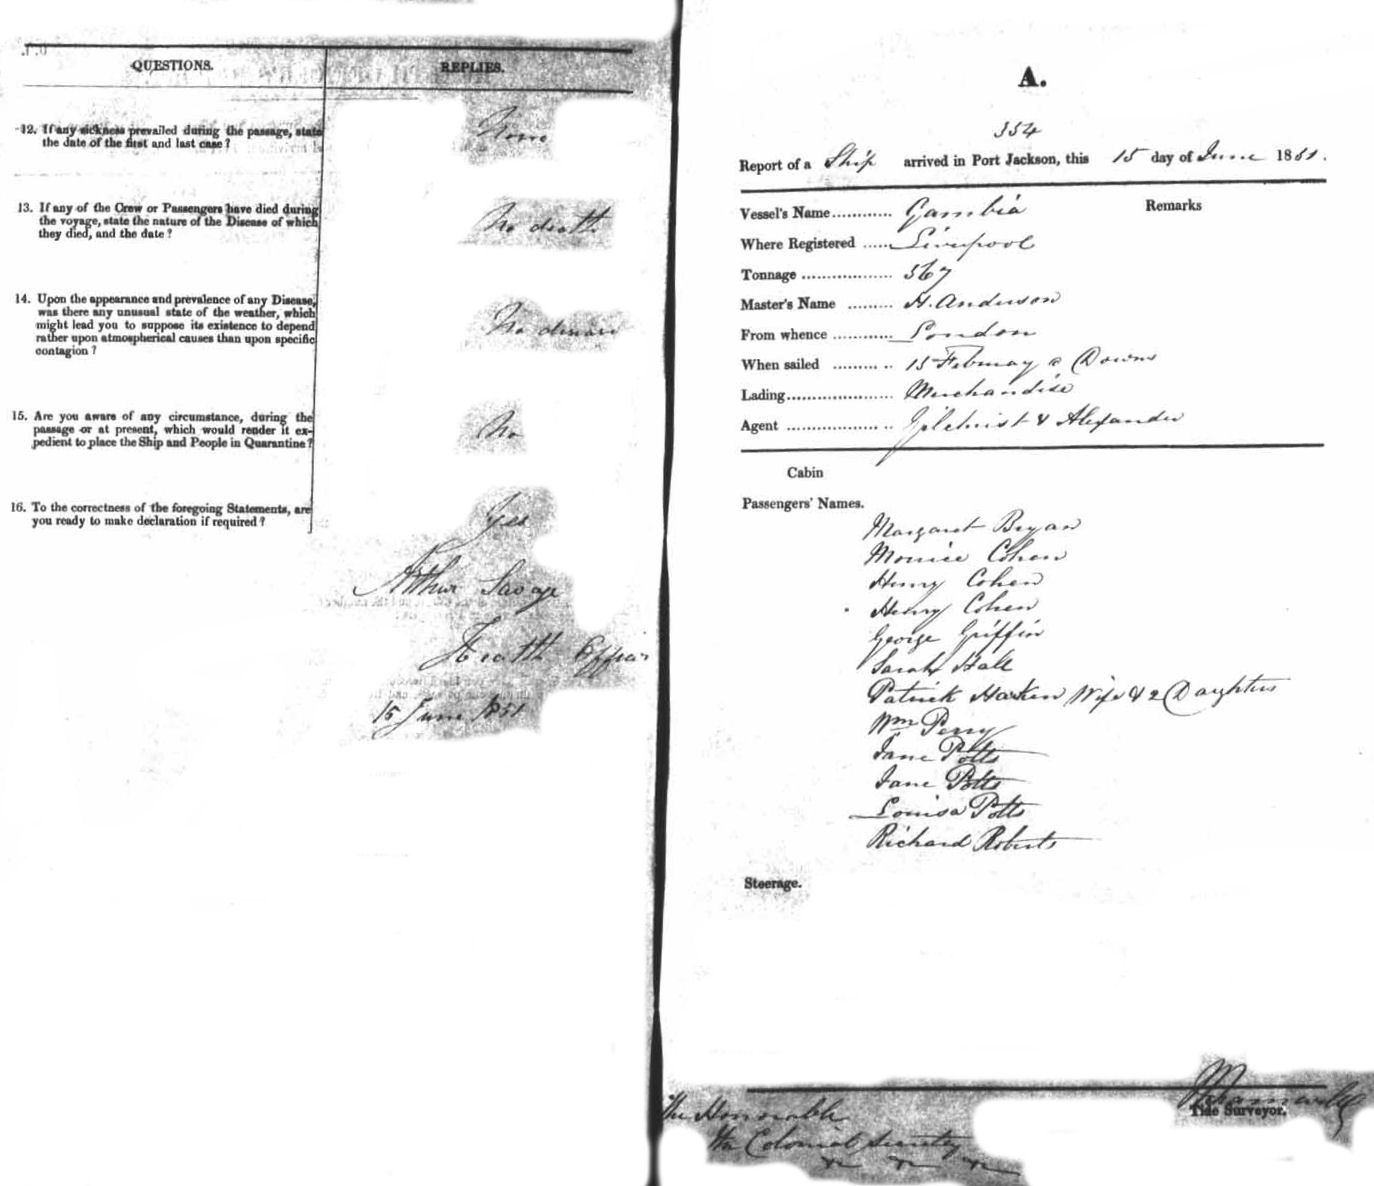 QUESTIONS.
REPLIES.
12. If any sickness prevailed during the passage, state
the date of the first and last case?
None
13. If any of the Crew or Passengers have died during
the voyage, state the nature of the Disease of which
they died, and the date?
No death
14. Upon the appearance and prevalence of any Disease,
was there any unusual state of the weather, which
might lead you to suppose its existence to depend
rather upon atmospherical causes than upon specific
contagion?
No disease
15. Are you aware of any circumstance, during the
passage or at present, which would render it ex-
pedient to place the Ship and People in Quarantine?
No
16. To the correctness of the foregoing Statements, are
you ready to make declaration if required?
Yes
Arthur Savage
Health Officer
15 June 1851
A.
354
Report of a Ship arrived in Port Jackson, this 15 day of June 1851.
Vessel's Name............ Gambia
Remarks
Where Registered ...... Liverpool
Tonnage .................. 567
Master's Name ......... H. Anderson
From whence ............ London
When sailed ......... .. 15 February @ Downs
Lading..................... Merchandise
Agent .................. .. Gilchrist & Alexander
Cabin
Passengers' Names.
Margaret Bryan
Monice Cohen
Henry Cohen
Henry Cohen
George Griffin
Sarah Hall
Patrick Harken Wife & 2 Daughters
Wm Perry
Jane Potts
Jane Potts
Louisa Potts
Richard Roberts
Steerage.
Tide Surveyor.
The Honorable
The Colonial Secretary